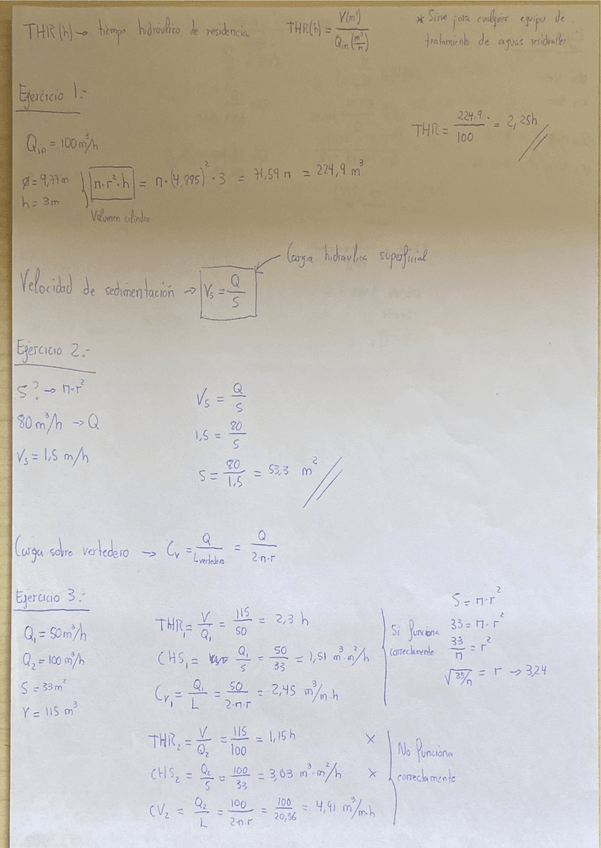 THR(h) → tiempo hidráulico de residencia
THR(h) = V(m³) / Qin (m³/h)
* Sirve para cualquier equipo de tratamiento de aguas residuales
Ejercicio 1:-
Qin = 100 m³/h
ø = 9,77 m
h = 3m
π·r²·h = π·(4,885)²·3 = 71,59 π = 224,9 m³
Volumen cilindro
THR = 224,9 / 100 = 2,25h
Carga hidráulica superficial
Velocidad de sedimentación → Vs = Q / S
Ejercicio 2:-
S? → π·r²
80 m³/h → Q
Vs = 1,5 m/h
Vs = Q / S
1,5 = 80 / S
S = 80 / 1,5 = 53,3 m²
Carga sobre vertedero → Cv = Q / Lvertedero = Q / 2·π·r
Ejercicio 3:-
Q₁ = 50 m³/h
Q₂ = 100 m³/h
S = 33 m²
V = 115 m³
THR₁ = V / Q₁ = 115 / 50 = 2,3 h
CHS₁ = Q₁ / S = 50 / 33 = 1,51 m³·m²/h
Cv₁ = Q₁ / L = 50 / 2·π·r = 2,45 m³/m·h
Si funciona correctamente
S = π·r²
33 = π·r²
33 / π = r²
√33/π = r → 3,24
THR₂ = V / Q₂ = 115 / 100 = 1,15 h ×
CHS₂ = Q₂ / S = 100 / 33 = 3,03 m³·m²/h ×
CV₂ = Q₂ / L = 100 / 2·π·r = 100 / 20,36 = 4,91 m³/m·h
No funciona correctamente